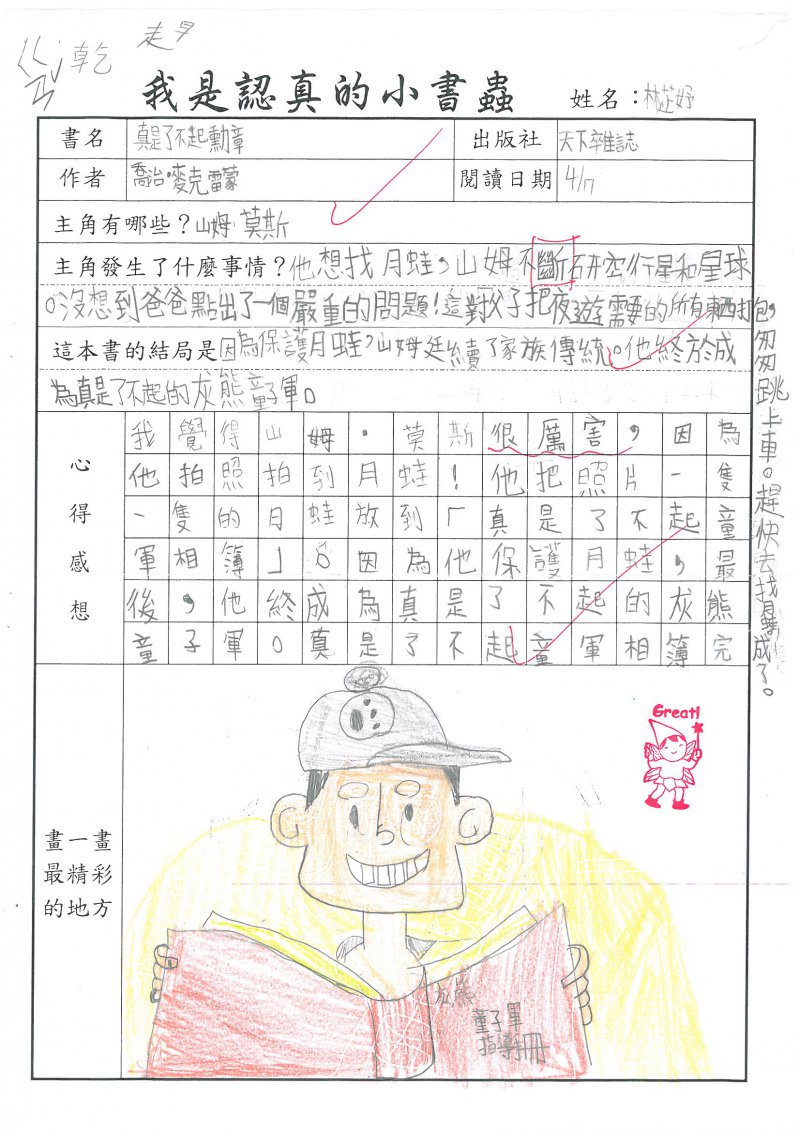 乾
我是認真的小書蟲 姓名：林芷妤
書名 真是了不起勳章 出版社 天下雜誌
作者 喬治·麥克雷蒙 閱讀日期 4/17
主角有哪些？山姆·莫斯
主角發生了什麼事情？他想找月蛙，山姆不斷研究行星和星球
。沒想到爸爸點出了一個嚴重的問題！這對父子把夜遊需要的所有東西打包，匆匆跳上車。趕快去找
成了。
這本書的結局是因為保護月蛙，山姆延續了家族傳統。他終於成
為真是了不起的灰熊童子軍。
心得感想
我覺得山姆·莫斯很厲害，因為
他拍照拍到月蛙！他把照片一隻
一隻的月蛙放到「真是了不起童
軍相簿」。因為他保護月蛙，最
後，他終成為真是了不起的灰熊
童子軍。真是了不起童軍相簿完
畫一畫
最精彩
的地方
Great!
灰熊
童子軍
指導冊